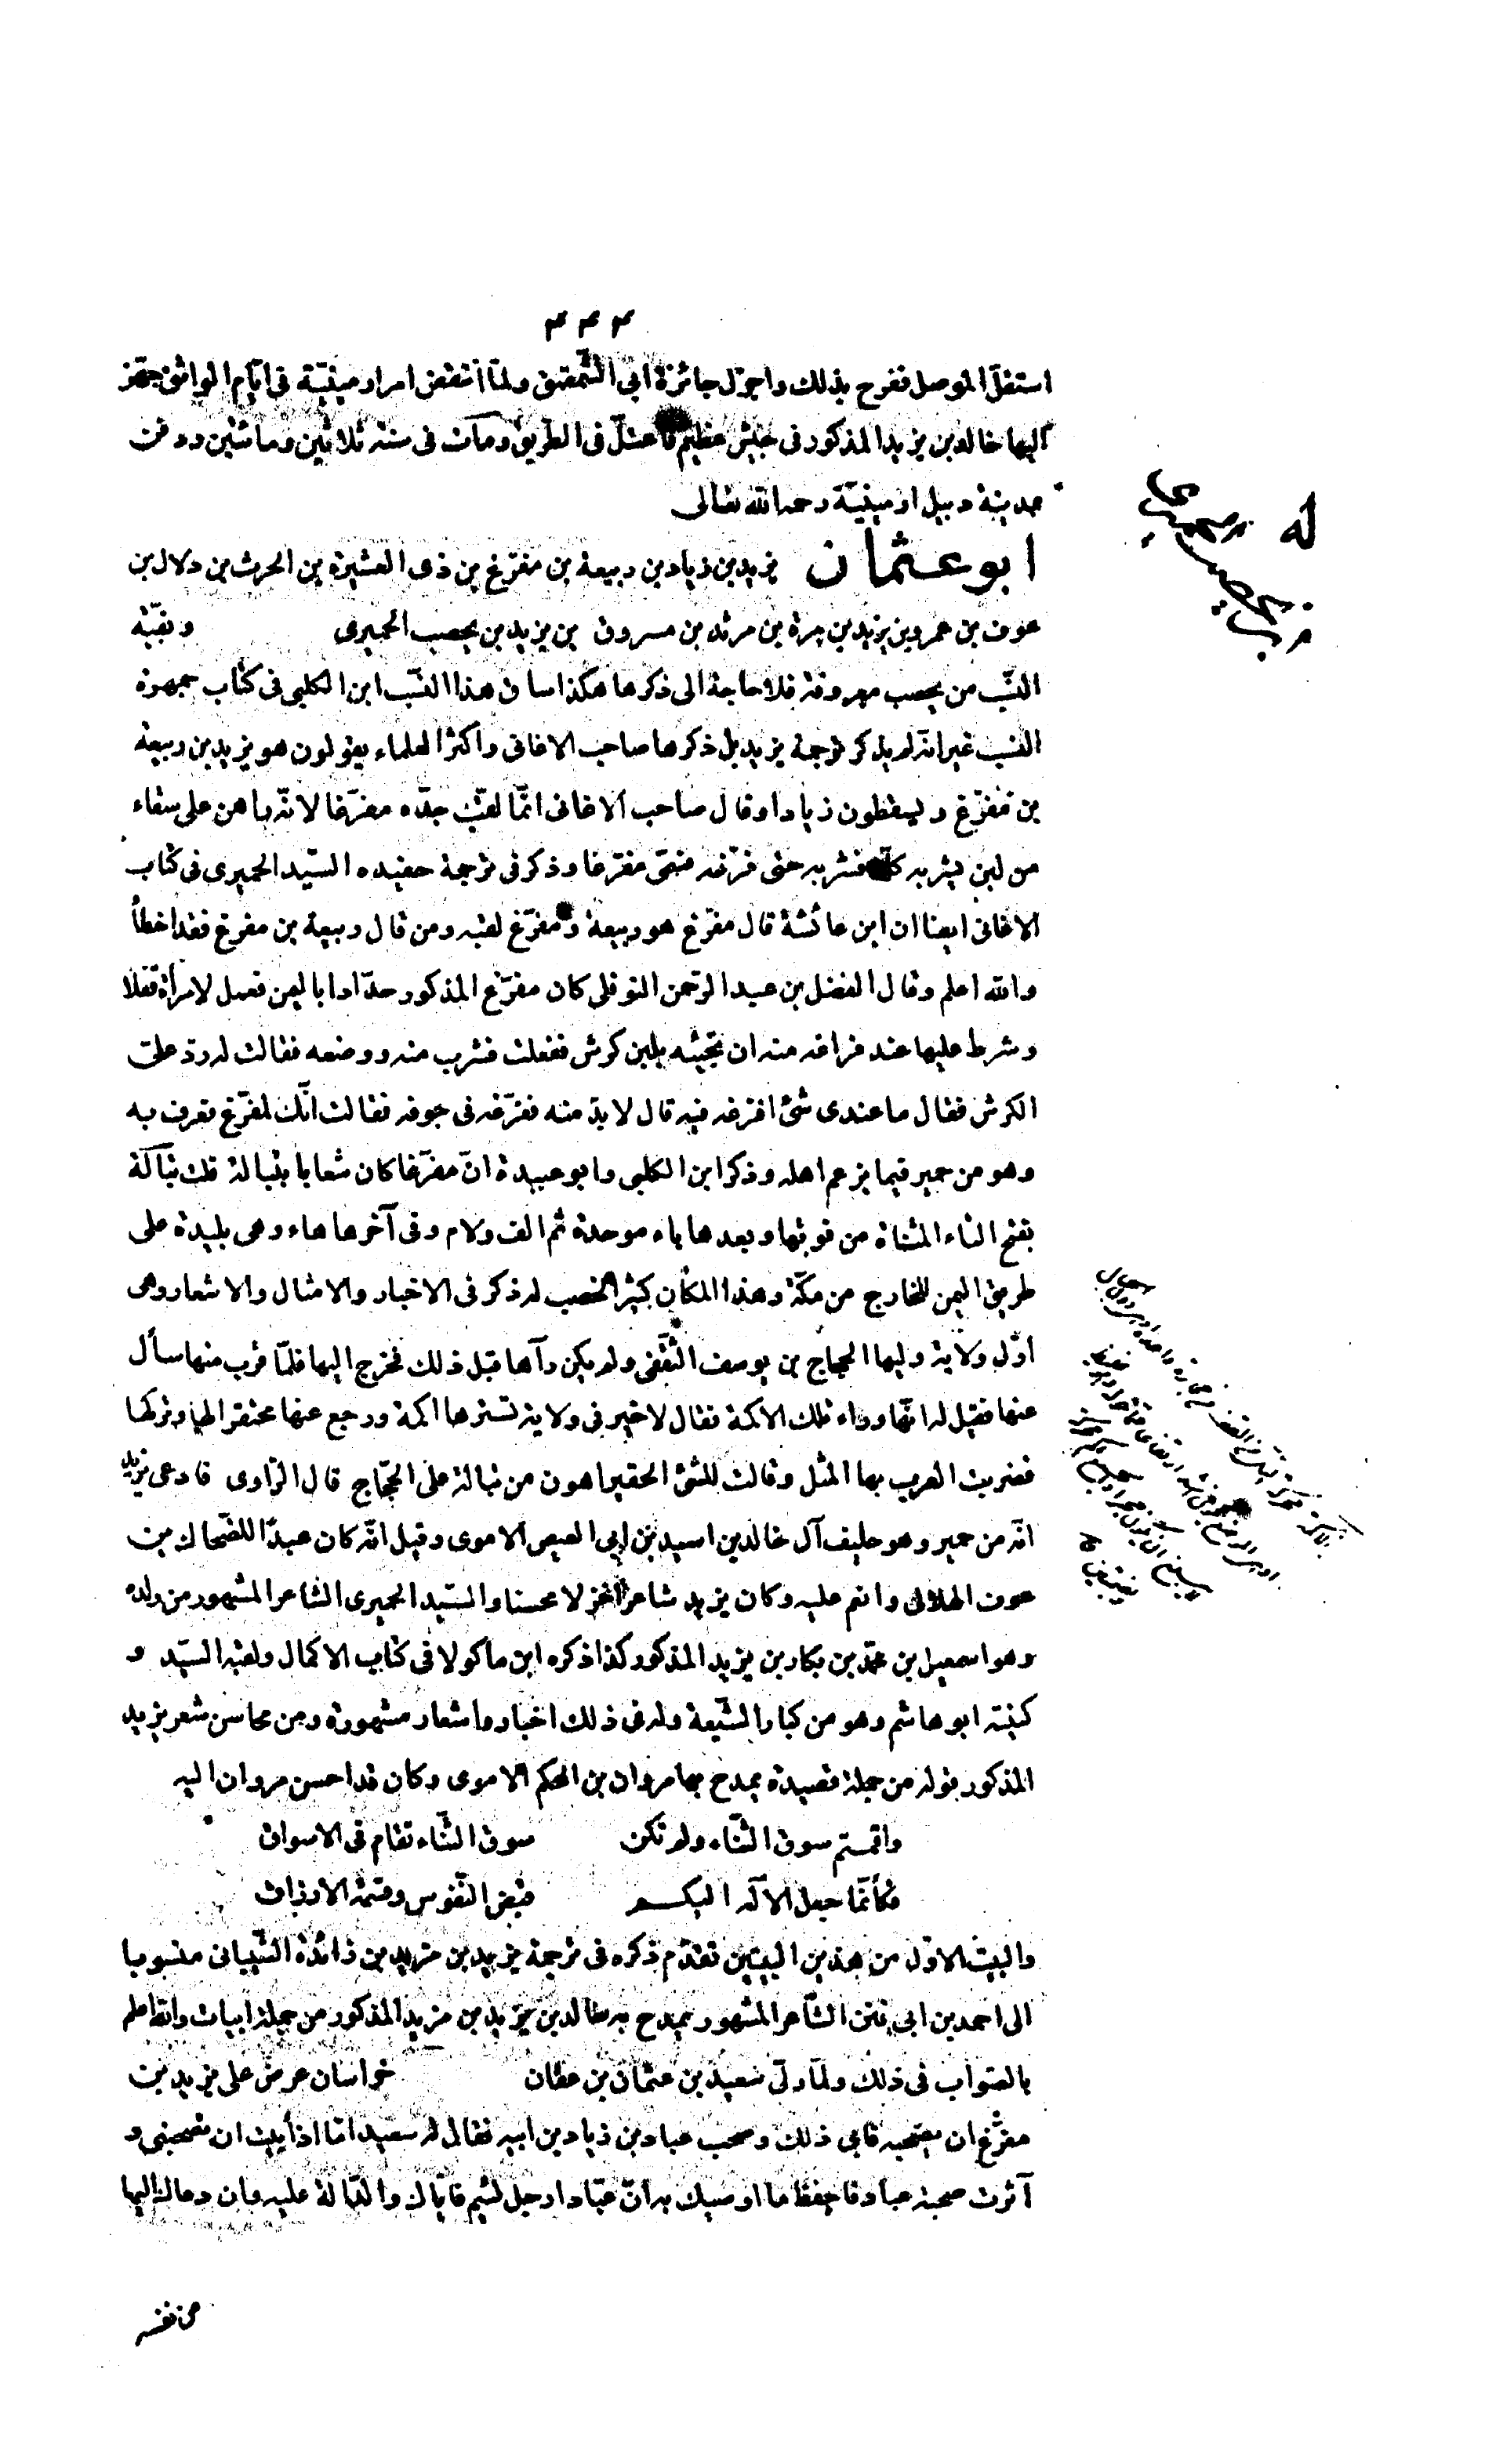 استقلّ الموصل ففرح بذلك واجزل جائزة ابى الشّمقمق ولمّا انتقض امر ارمينيّة فى ايّام الواثق جهّز
اليها خالد بن يزيد المذكور فى جيش عظيم فاعتلّ فى الطريق ومات فى سنة ثلاثين ومائتين ودفن
بمدينة دبيل ارمينيّة رحمه الله تعالى
ابو عثمان يزيد بن زياد بن ربيعة بن مفرّغ بن ذى العشيرة بن الحرث بن دلال بن
عوف بن عمرو بن يزيد بن مرة بن مرثد بن مسروق بن يزيد بن يحصب الحميرى وبقيّة
النسب من يحصب معروفة فلا حاجة الى ذكرها هكذا ساق هذا النسب ابن الكلبى فى كتاب جمهرة
النسب غير انّه لم يذكر ترجمة يزيد بل ذكرها صاحب الاغانى واكثر العلماء يقولون هو يزيد بن ربيعة
بن مفرّغ ويسقطون زيادا وقال صاحب الاغانى انّما لقّب جدّه مفرّغا لانّه راهن على سقاء
من لبن يشربه كلّه فشربه حتى فرّغه فسمّى مفرّغا وذكر فى ترجمة حفيده السيّد الحميرى فى كتاب
الاغانى ايضا ان ابن عائشة قال مفرّغ هو ربيعة ومفرّغ لقبه ومن قال ربيعة بن مفرغ فقد اخطأ
والله اعلم وقال الفضل بن عبد الرحمن النوفلى كان مفرّغ المذكور حدّادا باليمن فعمل لامرأة قفلا
وشرط عليها عند فراغه منه ان تجيئه بلبن كرش ففعلت فشرب منه ووضعه فقالت له ردّ علىّ
الكرش فقال ما عندى شئ افرغه فيه قال لا بدّ منه ففرّغه فى جوفه فقالت انّك لمفرّغ فعرف به
وهو من حمير فيما يزعم اهله وذكر ابن الكلبى وابو عبيدة انّ مفرّغا كان شعّابا بتبالة قلت تبالة
بفتح التاء المثناة من فوقها وبعدها باء موحدة ثم الف ولام وفى آخرها هاء وهى بليدة على
طريق اليمن للخارج من مكّة وهذا المكان كثير الخصب له ذكر فى الاخبار والامثال والاشعار وهى
اوّل ولاية وليها الحجاج بن يوسف الثّقفى ولم يكن رآها قبل ذلك فخرج اليها فلمّا قرب منها سأل
عنها فقيل له انّها وراء تلك الاكمة فقال لا خير فى ولاية تسترها اكمة ورجع عنها محتقرا لها وتركها
فضربت العرب بها المثل وقالت للشئ الحقير اهون من تبالة على الحجّاج قال الرّاوى فادعى يزيد
انّه من حمير وهو حليف آل خالد بن اسيد بن ابى العيص الاموى وقيل انّه كان عبدًا للضّحاك بن
عوف الهلالى وانعم عليه وكان يزيد شاعرا غزلا محسنا والسيّد الحميرى الشاعر المشهور من ولده
وهو اسمعيل بن محمّد بن بكار بن يزيد المذكور كذا ذكره ابن ماكولا فى كتاب الاكمال ولقبه السيّد و
كنيته ابو هاشم وهو من كبار الشّيعة وله فى ذلك اخبار واشعار مشهورة ومن محاسن شعر يزيد
المذكور قوله من جملة قصيدة يمدح بها مروان بن الحكم الاموى وكان قد احسن مروان اليه
واقمتم سوق الثّناء ولم تكن سوق الثّناء تقام فى الاسواق
فكأنّما جعل الاله اليكم قبض النّفوس وقسمة الارزاق
والبيت الاوّل من هذين البيتين تقدّم ذكره فى ترجمة يزيد بن مزيد بن زائدة الشّيبانى منسوبا
الى احمد بن ابى فنن الشّاعر المشهور يمدح به خالد بن يزيد بن مزيد المذكور من جملة ابيات والله اعلم
بالصّواب فى ذلك ولمّا ولّى سعيد بن عثمان بن عفّان خراسان عرض على يزيد بن
مفرّغ ان يصحبه فابى ذلك وصحب عباد بن زياد بن ابيه فقال له سعيد امّا اذ أبيت ان تصحبنى و
آثرت صحبة عباد فاحفظ ما اوصيك به انّ عبّادا رجل لئيم فايّاك والدّالة عليه وان دعاك اليها
من نفسه